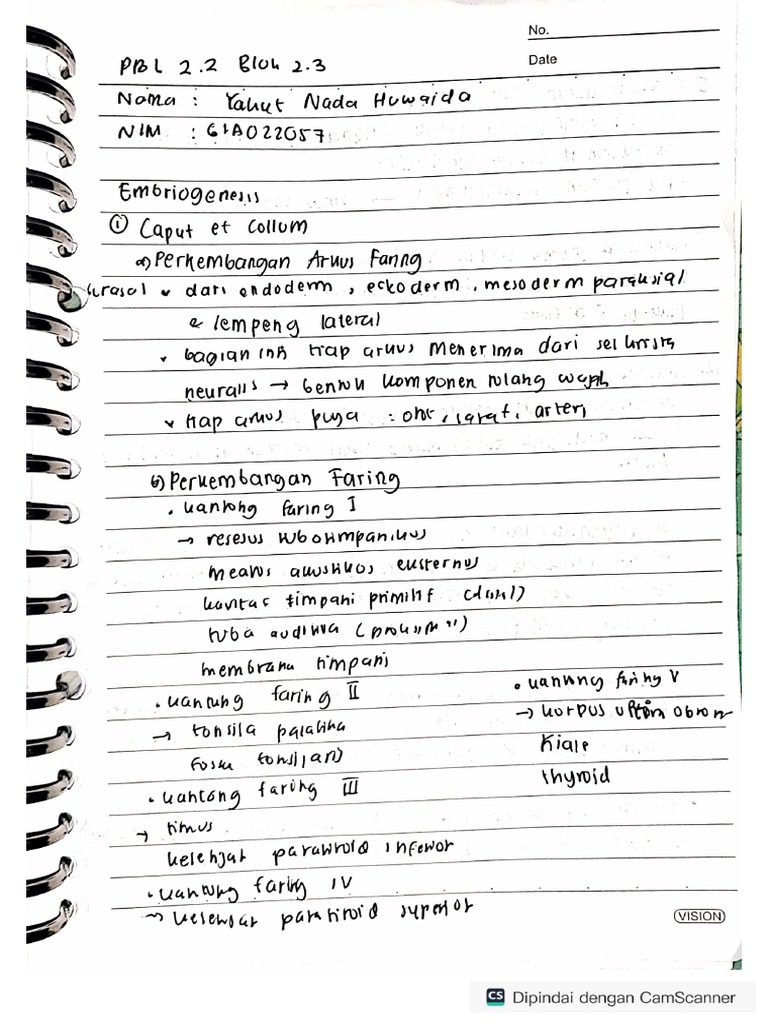 No.
Date
PBL 2.2 Blok 2.3
Nama : Yakut Nada Huwaida
NIM : G1A022057
Embriogenesis
① Caput et Collum
a) Perkembangan Arkus Faring
berasal • dari endoderm, ectoderm, mesoderm paraksial
& lempeng lateral
• bagian inti tiap arkus menerima dari sel krista
neuralis → bentuk komponen tulang wajah
• tiap arkus punya : otot, saraf, arteri
b) Perkembangan Faring
• kantong faring I
→ resesus tubotimpanikus
meatus akustikus eksternus
kavitas timpani primitif (distal)
tuba auditiva (proksimal)
membrana timpani
• kantung faring II
→ tonsila palatina
fossa tonsilaris
• kantong faring III
→ timus
kelenjar paratiroid inferior
• kantung faring IV
→ kelenjar paratiroid superior
• kantong faring V
→ korpus ultimobran
kiale
thyroid
VISION
CS Dipindai dengan CamScanner